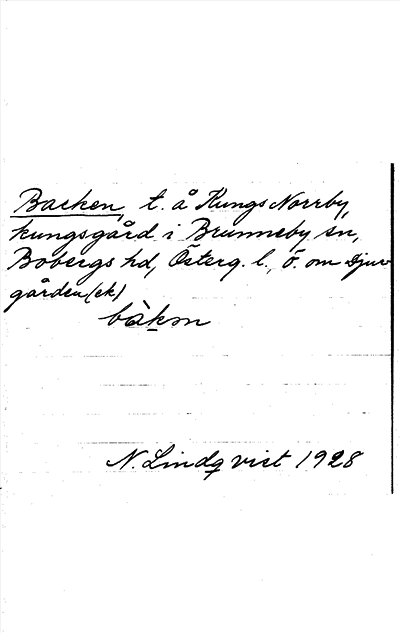 Backen, t. å Kungs Norrby
kungsgård i Brunneby sn,
Bobergs hd, Österg. l., ö. om Djur-
gården (ek)
bàkm
N. Lindqvist 1928